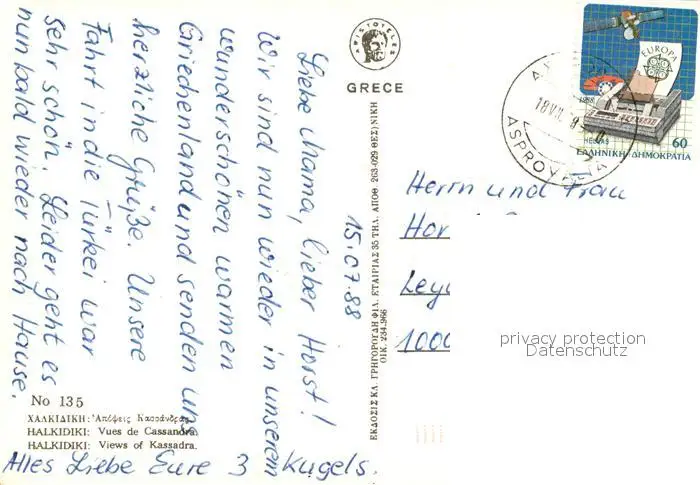 Liebe Mama, lieber Horst!
Wir sind nun wieder in unserem
wunderschönen warmen
Griechenland und senden uns
herzliche Grüße. Unsere
Fahrt in die Türkei war
sehr schön. Leider geht es
nun bald wieder nach Hause.
Alles Liebe Eure 3 Kugels.
15.07.88
No 135
ΧΑΛΚΙΔΙΚΗ: Ἀπόψεις Κασσάνδρας
HALKIDIKI: Vues de Cassandra.
HALKIDIKI: Views of Kassadra.
ARISTOTELES
GRECE
ΕΚΔΟΣΙΣ ΚΛ. ΓΡΗΓΟΡΟΥΔΗ ΦΙΛ. ΕΤΑΙΡΙΑΣ 35 ΤΗΛ. ΑΠΟΘ. 263-029 ΘΕΣ)ΝΙΚΗ
ΟΙΚ. 234.968
EUROPA
1988
HELLAS
60
ΕΛΛΗΝΙΚΗ ΔΗΜΟΚΡΑΤΙΑ
18 VII
Herrn und Frau
Hor
Ley
1000
privacy protection
Datenschutz